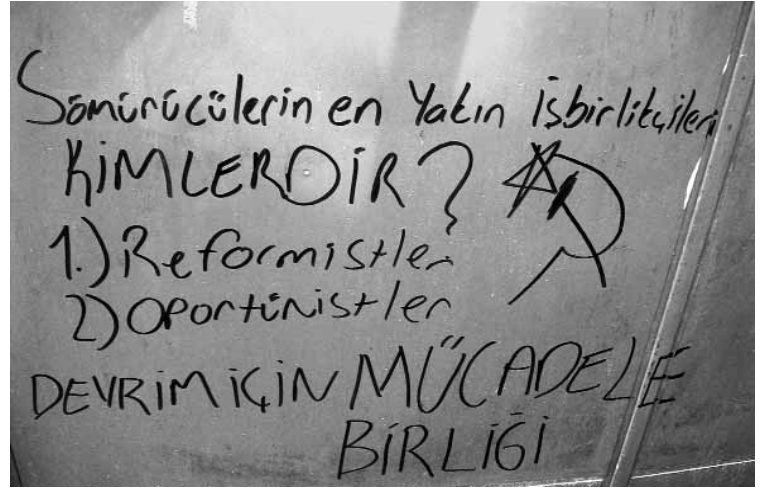 Sömürücülerin en Yakın İşbirlikçileri
KİMLERDİR?
1.) Reformistler
2) OPortünistler
DEVRİM İÇİN MÜCADELE
BİRLİĞİ